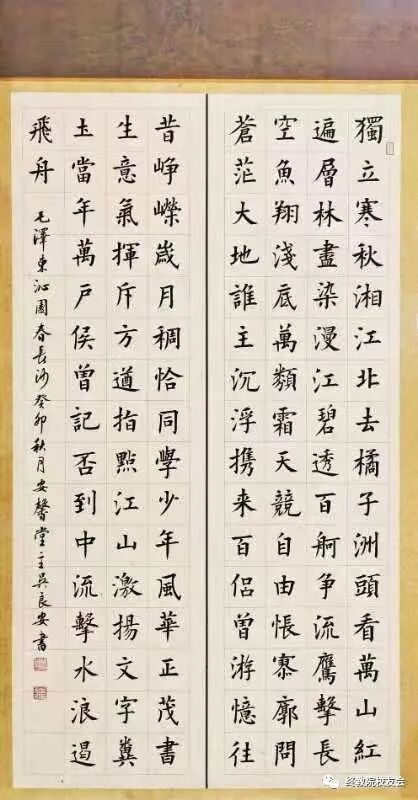 獨立寒秋湘江北去橘子洲頭看萬山紅
遍層林盡染漫江碧透百舸争流鷹擊長
空魚翔淺底萬類霜天競自由悵寥廓問
蒼茫大地誰主沉浮携来百侣曾游憶往
昔崢嶸歲月稠恰同學少年風華正茂書
生意氣揮斥方遒指點江山激揚文字糞
土當年萬戶侯曾記否到中流擊水浪遏
飛舟
毛澤東沁園春長沙癸卯秋月安馨堂主吳良安書
终教院校友会